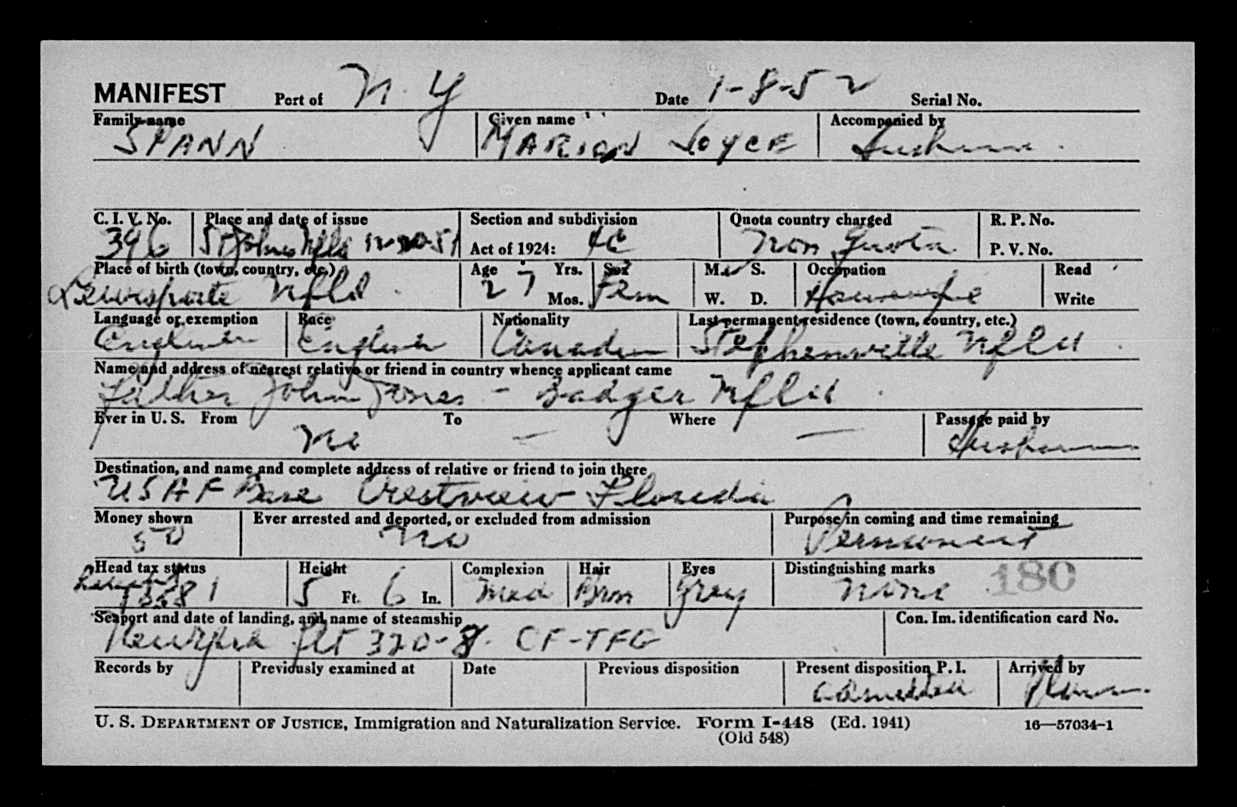 MANIFEST Port of N. Y Date 1-8-52 Serial No.
Family name Given name Accompanied by
SPANN MARION JOYCE
C. I. V. No. Place and date of issue Section and subdivision Quota country charged R. P. No.
396 St Johns Nfld 12-20-51 Act of 1924: 4C Non Quota P. V. No.
Place of birth (town, country, etc.) Age Yrs. Sex M. S. Occupation Read
Lewisporte Nfld. 27 Mos. Fem W. D. Housewife Write
Language or exemption Race Nationality Last permanent residence (town, country, etc.)
English English Canadian Stephenville Nfld.
Name and address of nearest relative or friend in country whence applicant came
Father John Jones - Badger Nfld.
Ever in U. S. From To Where Passage paid by
No — — Husband
Destination, and name and complete address of relative or friend to join there
USAF Base Crestview Florida
Money shown Ever arrested and deported, or excluded from admission Purpose in coming and time remaining
50 No Permanent
Head tax status Height Complexion Hair Eyes Distinguishing marks 180
5 Ft. 6 In. Med Brn Grey None
Seaport and date of landing, and name of steamship Con. Im. identification card No.
flt 320-8. CF-TFG
Records by Previously examined at Date Previous disposition Present disposition P. I. Arrived by
admitted Plane
U. S. DEPARTMENT OF JUSTICE, Immigration and Naturalization Service. Form I-448 (Ed. 1941) 16—57034-1
(Old 548)